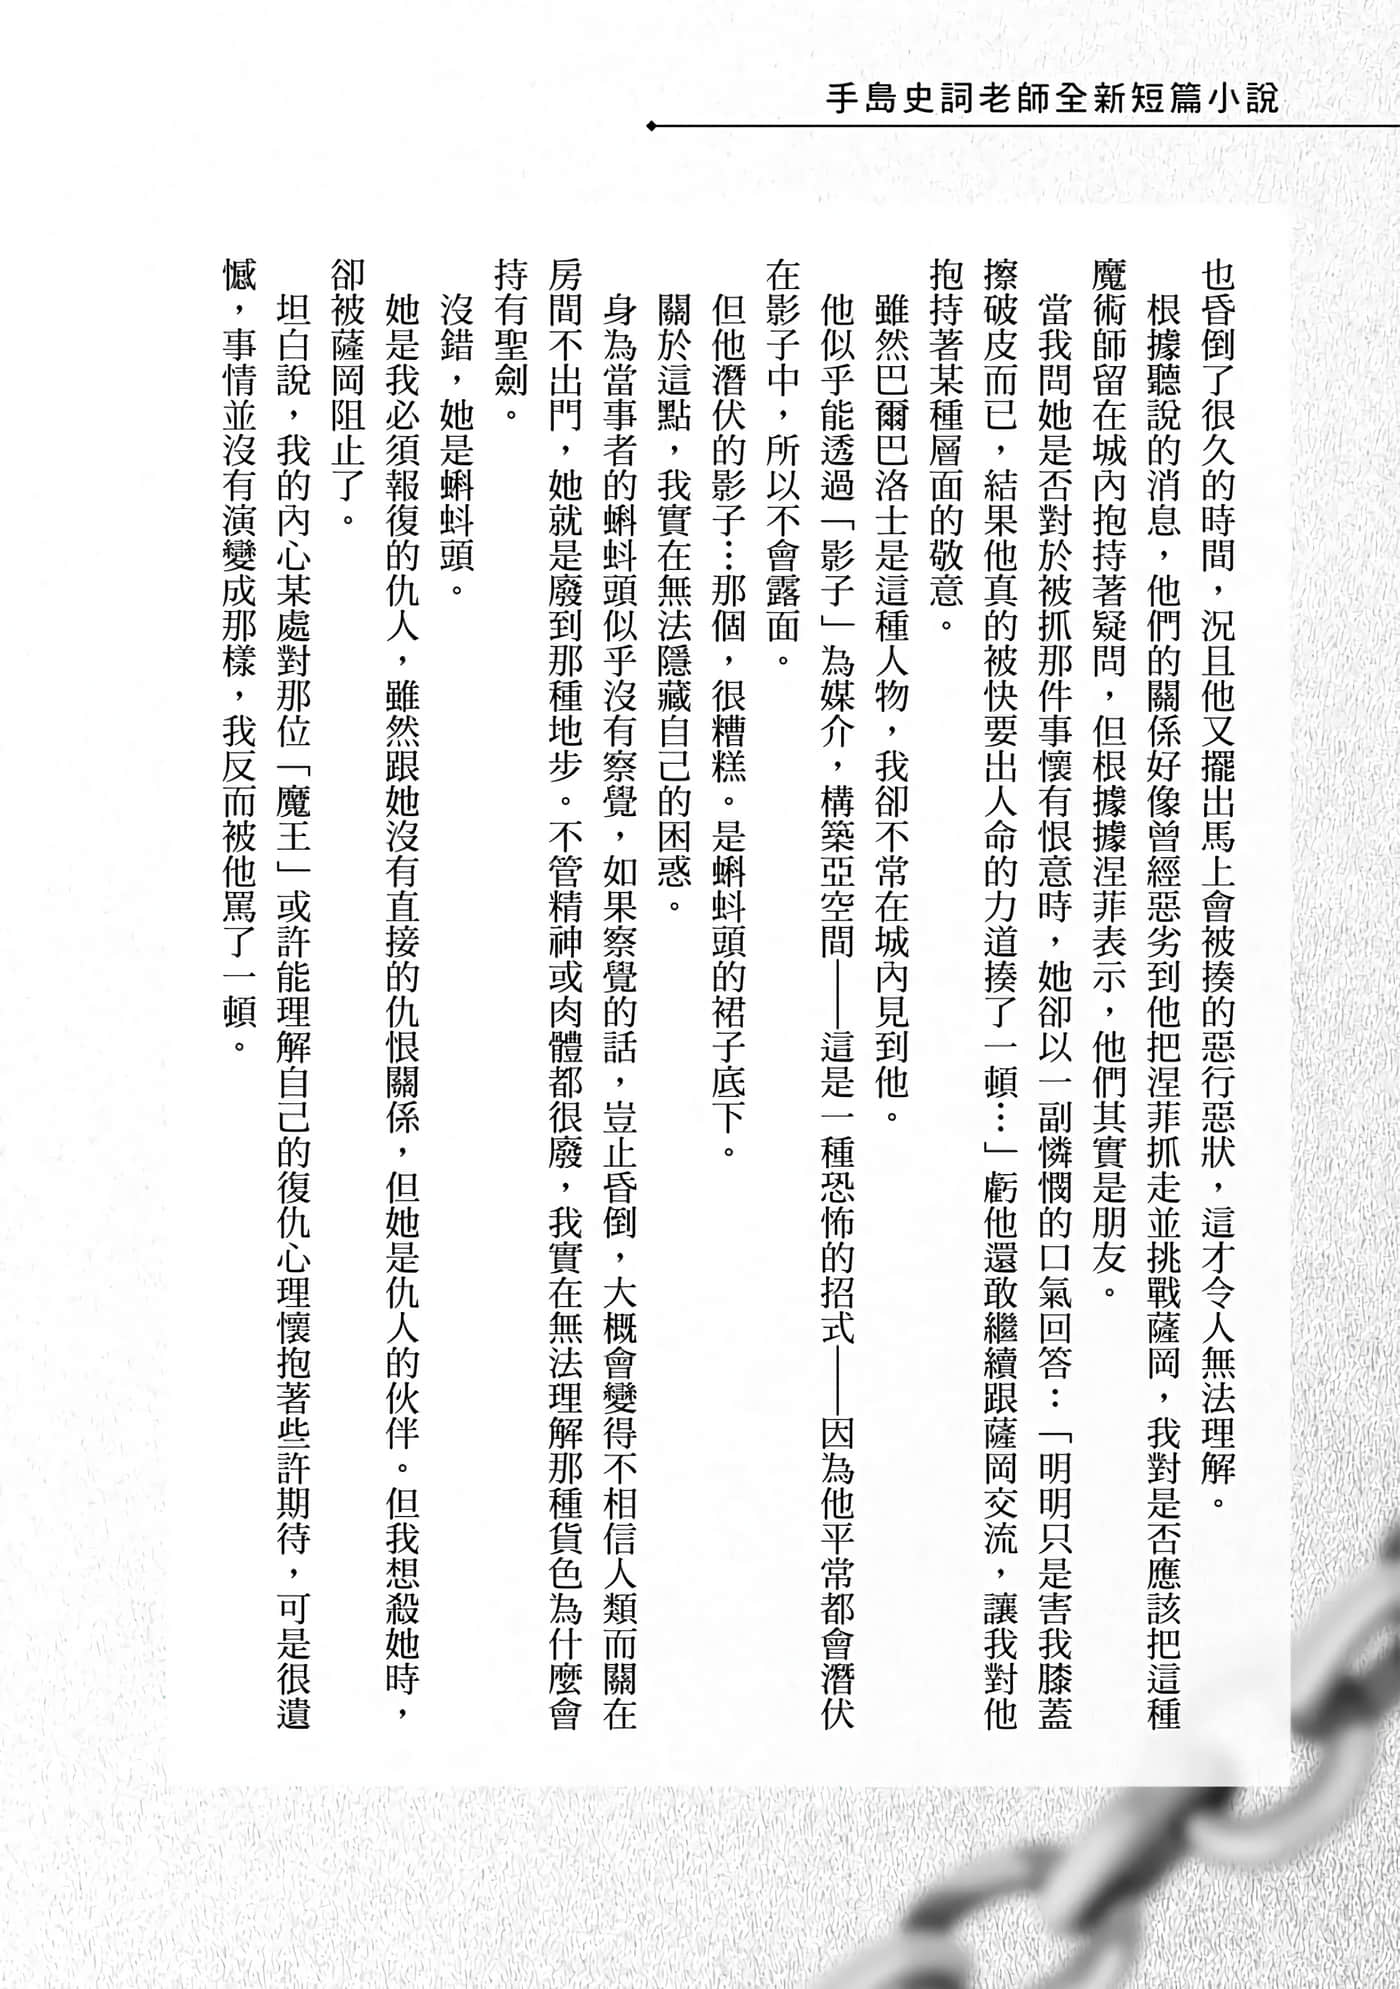 手島史詞老師全新短篇小說
也昏倒了很久的時間，況且他又擺出馬上會被揍的惡行惡狀，這才令人無法理解。
根據聽說的消息，他們的關係好像曾經惡劣到他把涅菲抓走並挑戰薩岡，我對是否應該把這種
魔術師留在城內抱持著疑問，但根據據涅菲表示，他們其實是朋友。
當我問她是否對於被抓那件事懷有恨意時，她卻以一副憐憫的口氣回答：「明明只是害我膝蓋
擦破皮而已，結果他真的被快要出人命的力道揍了一頓…」虧他還敢繼續跟薩岡交流，讓我對他
抱持著某種層面的敬意。
雖然巴爾巴洛士是這種人物，我卻不常在城內見到他。
他似乎能透過「影子」為媒介，構築亞空間——這是一種恐怖的招式——因為他平常都會潛伏
在影子中，所以不會露面。
但他潛伏的影子…那個，很糟糕。是蝌蚪頭的裙子底下。
關於這點，我實在無法隱藏自己的困惑。
身為當事者的蝌蚪頭似乎沒有察覺，如果察覺的話，豈止昏倒，大概會變得不相信人類而關在
房間不出門，她就是廢到那種地步。不管精神或肉體都很廢，我實在無法理解那種貨色為什麼會
持有聖劍。
沒錯，她是蝌蚪頭。
她是我必須報復的仇人，雖然跟她沒有直接的仇恨關係，但她是仇人的伙伴。但我想殺她時，
卻被薩岡阻止了。
坦白說，我的內心某處對那位「魔王」或許能理解自己的復仇心理懷抱著些許期待，可是很遺
憾，事情並沒有演變成那樣，我反而被他罵了一頓。